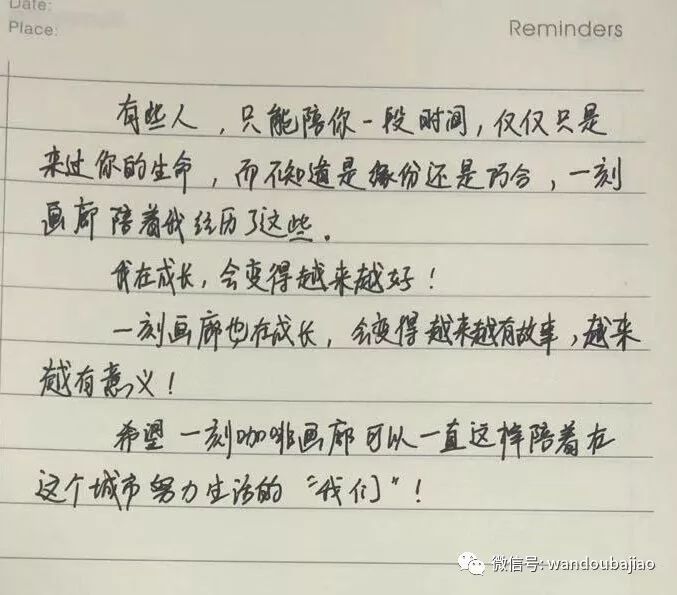 Date:
Place:
Reminders
有些人，只能陪你一段时间，仅仅只是
来过你的生命，而不知道是缘份还是巧合，一刻
画廊陪着我经历了这些。
我在成长，会变得越来越好！
一刻画廊也在成长，会变得越来越有故事，越来
越有意义！
希望一刻咖啡画廊可以一直这样陪着在
这个城市努力生活的“我们”！
微信号: wandoubajiao